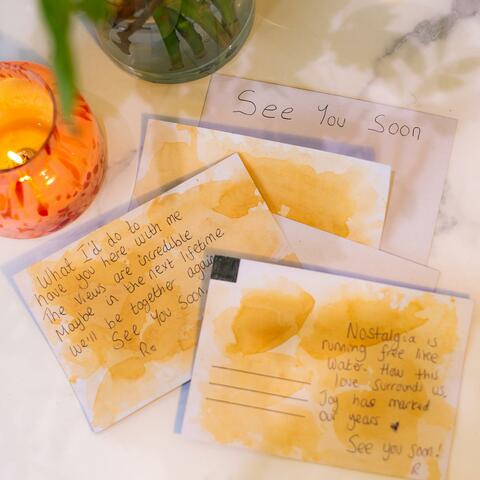 See You Soon
What I'd do to
have you here with me
The views are incredible
Maybe in the next lifetime
we'll be together again
See You Soon!
R.
Nostalgia is
running free like
Water. How this
love surrounds us.
Joy has marked
our years
See you soon!
R